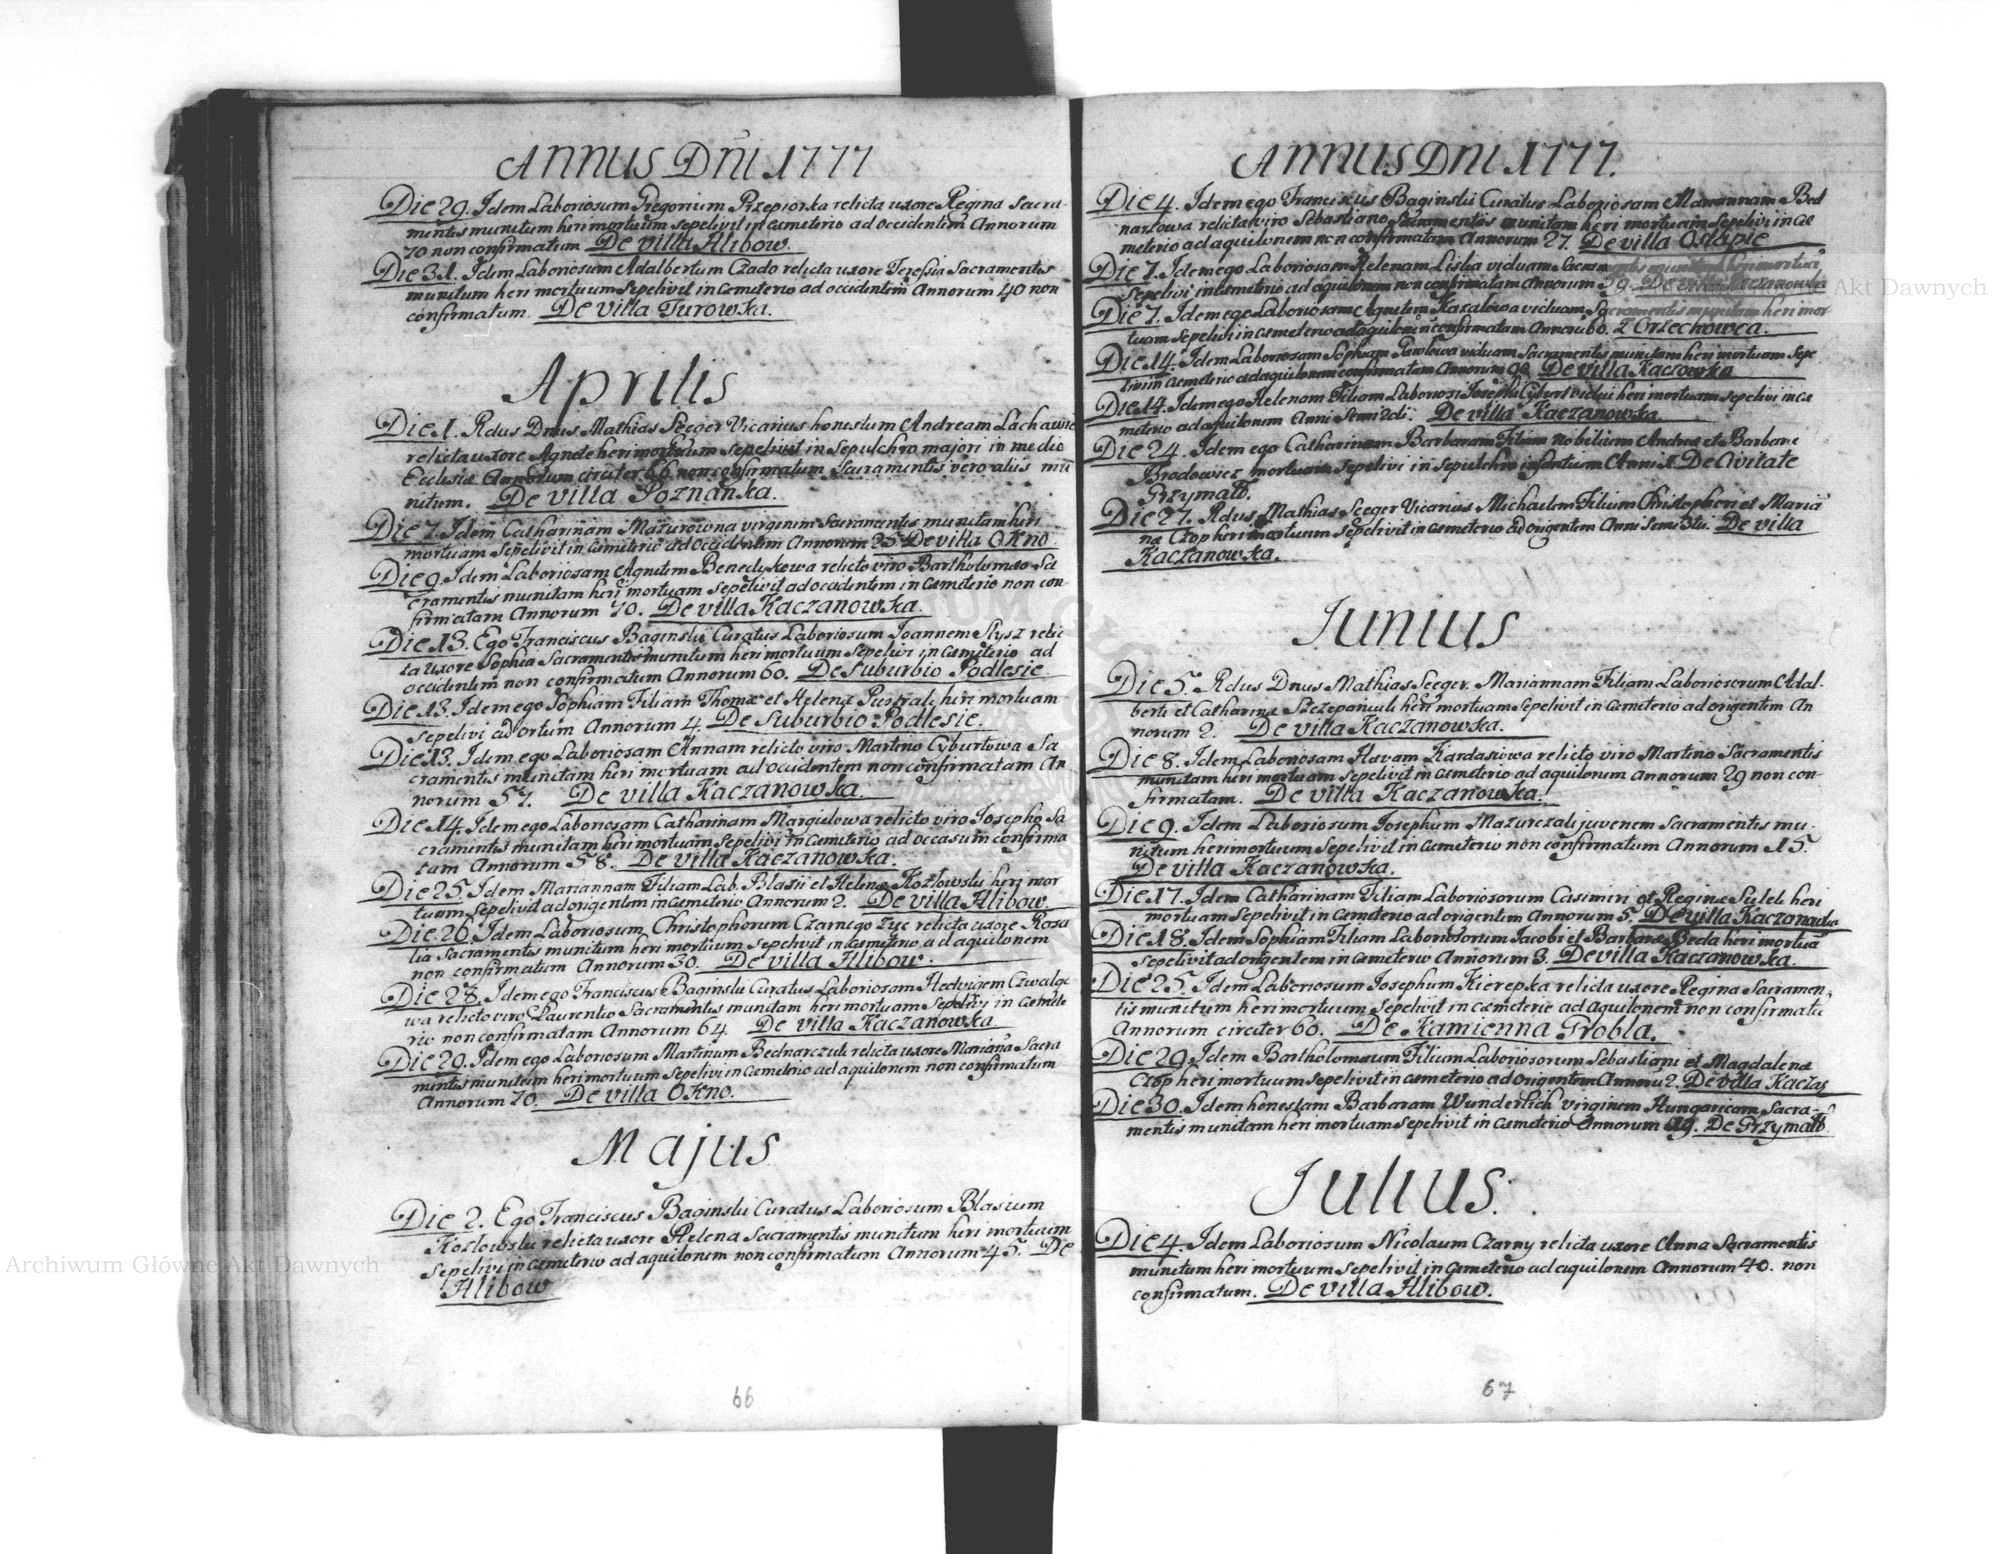 ANNUS Dñi 1777
Die 29. Idem Laboriosum Gregorium Przepiorka relicta uxore Regina Sacra-
mentis munitum heri mortuum sepelivit in Cæmeterio ad occidentem Annorum
70 non confirmatum De villa Hlibow.
Die 31. Idem Laboriosum Adalbertum Czado relicta uxore Teressia Sacramentis
munitum heri mortuum Sepelivit in Cæmeterio ad occidentem Annorum 40 non
confirmatum. De villa Turowka.
Aprilis
Die 1. Rdus Dnus Mathias Seeger Vicarius honestum Andream Lachawic
relicta uxore Agnete heri mortuum sepelivit in Sepulchro majori in medio
Ecclesiæ Annorum circiter 66 non confirmatum Sacramentis vero aliis mu
nitum. De villa Poznanka.
Die 7. Idem Catharinam Mazurowna virginem Sacramentis munitam heri
mortuam Sepelivit in Cæmeterio ad Occidentem Annorum 25 De villa OKno
Die 9. Idem Laboriosam Agnetem Benedykowa relicto viro Bartholomæo Sa
cramentis munitam heri mortuam sepelivit ad occidentem in Cæmeterio non con-
firmatam Annorum 70. De villa Kaczanowka.
Die 13. Ego Franciscus Baginski Curatus Laboriosum Joannem Slysz relic
ta uxore Sophia Sacramentis munitum heri mortuum Sepelivi in Cæmeterio ad
occidentem non confirmatum Annorum 60. De Suburbio Podlesie
Die 13. Idem ego Sophiam Filiam Thomæ et Helenæ heri mortuam
Sepelivi ad ortum Annorum 4. De Suburbio Podlesie.
Die 13. Idem ego Laboriosam Annam relicto viro Martino Cyburtowa Sa
cramentis munitam heri mortuam ad occidentem non confirmatam An
norum 57. De villa Kaczanowka.
Die 14. Idem ego Laboriosam Catharinam Margulowa relicto viro Josepho Sa
cramentis munitam heri mortuam Sepelivi in Cæmeterio ad occasum confirma
tam Annorum 58. De villa Kaczanowka.
Die 25. Idem Mariannam Filiam Lab. Blasii et Helenæ Kozlowski heri mor
tuam Sepelivit ad orientem in Cæmeterio Annorum 2. De villa Hlibow.
Die 26. Idem Laboriosum Christophorum Czarnego relicta uxore Rosa
lia Sacramentis munitum heri mortuum sepelivit in Cæmeterio ad aquilonem
non confirmatum Annorum 30. De villa Hlibow.
Die 28. Idem ego Franciscus Baginski Curatus Laboriosam Hedvigem
wa relicto viro Laurentio Sacramentis munitam heri mortuam Sepelivi in Cæmete
rio non confirmatam Annorum 64. De villa Kaczanowka
Die 29. Idem ego Laboriosum Martinum Bednarczuk relicta uxore Mariana Sacra
mentis munitum heri mortuum Sepelivi in Cæmeterio ad aquilonem non confirmatum
Annorum 70. De villa OKno.
Majus
Die 2. Ego Franciscus Baginski Curatus Laboriosum Blasium
Kozlowski relicta uxore Helena Sacramentis munitum heri mortuum
Sepelivi in Cæmeterio ad aquilonem non confirmatum Annorum 45. De
Hlibow
66
ANNUS Dni 1777.
Die 4. Idem ego Franciscus Baginski Curatus Laboriosam Mariannam Bed
narzowa relicta viro Sebastiano Sacramentis munitam heri mortuam Sepelivi in Cæ
meterio ad aquilonem non confirmatam Annorum 27. De villa Ostapie
Die 7. Idem ego Laboriosam Helenam Liska viduam Sacramentis munitam heri mortua
Sepelivi in Cæmeterio ad aquilonem non confirmatam Annorum 59. De villa Kaczanowka
Die 7. Idem ego Laboriosam Agnetem viduam Sacramentis munitam heri mor
tuam Sepelivi in Cæmeterio ad aquilonem confirmatam Annoru 60. z Orzechowca.
Die 14. Idem Laboriosam Sophiam Pawlowa viduam Sacramentis munitam heri mortuam Sepe
livi in Cæmeterio ad aquilonem confirmatam Annorum 90 De villa Kaczowka
Die 14. Idem ego Helenam Filiam Laboriosi Josephi Cyburt vidui heri mortuam sepelivi in Cæ
meterio ad aquilonem Anni De villa Kaczanowka
Die 24. Idem ego Catharinam Barbaram Filiam nobilium Andreæ et Barbaræ
Brodowicz mortuam Sepelivi in Sepulchro infantum Anni 1. De Civitate
Grzymalb.
Die 27. Rdus Mathias Seeger Vicarius Michaelem Filium Christophori et Maria
næ Czop heri mortuum Sepelivit in Cæmeterio ad orientem Anni De villa
Kaczanowka.
Junius
Die 5. Rdus Dnus Mathias Seeger. Mariannam Filiam Laboriosorum Adal-
berti et Catharinæ Szczepaniuk heri mortuam Sepelivit in Cæmeterio ad orientem An
norum 2. De villa Kaczanowka.
Die 8. Idem Laboriosam Hevam Kardasiowa relicto viro Martino Sacramentis
munitam heri mortuam sepelivit in Cæmeterio ad aquilonem Annorum 29 non con-
firmatam. De villa Kaczanowka.
Die 9. Idem Laboriosum Josephum Mazurczak juvenem Sacramentis mu-
nitum heri mortuum Sepelivit in Cæmeterio non confirmatum Annorum 15.
De villa Kaczanowka.
Die 17. Idem Catharinam Filiam Laboriosorum Casimiri et Reginæ heri
mortuam Sepelivit in Cæmeterio ad orientem Annorum 5. De villa Kaczanowka
Die 18. Idem Sophiam Filiam Laboriosorum Jacobi et Barbaræ Beda heri mortua
Sepelivit ad orientem in Cæmeterio Annorum 3. De villa Kaczanowka.
Die 25. Idem Laboriosum Josephum Kierepka relicta uxore Regina Sacramen-
tis munitum heri mortuum Sepelivit in Cæmeterio ad Aquilonem non confirmatu
Annorum circiter 60. De Kamienna Grobla.
Die 29. Idem Bartholomæum Filium Laboriosorum Sebastiani et Magdalenæ
Czop heri mortuum Sepelivit in Cæmeterio ad orientem Annoru 2. De villa Kaczas
Die 30. Idem honestam Barbaram Wunderlich virginem Hungaricam Sacra-
mentis munitam heri mortuam Sepelivit in Cæmeterio Annorum 19. De Grzymalb
Julius.
Die 4. Idem Laboriosum Nicolaum Czarny relicta uxore Anna Sacramentis
munitum heri mortuum Sepelivit in Cæmeterio ad aquilonem Annorum 40. non
confirmatum. De villa Hlibow.
67
Archiwum Główne Akt Dawnych
Akt Dawnych